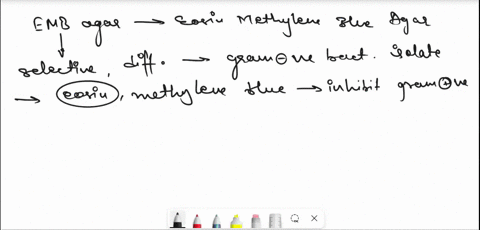 EMB agar → Eosin Methylene Blue Agar
selective, diff. → gram⊖ve bact. isolate
→ eosin, methylene blue → inhibit gram⊕ve